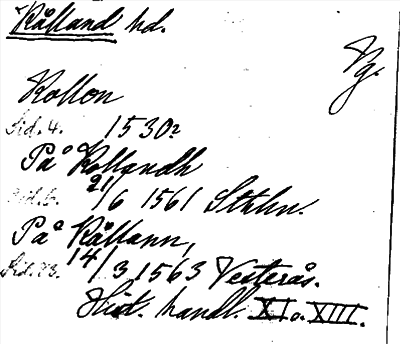 Kålland hd.
Vg.
Kollon
Sid. 4. 1530?
På Kollandh
Sid. 6. 21/6 1561 Sthlm.
På Kållann,
Sid. 73. 14/3 1563 Vesterås.
Hist. handl. XI o. XIII.